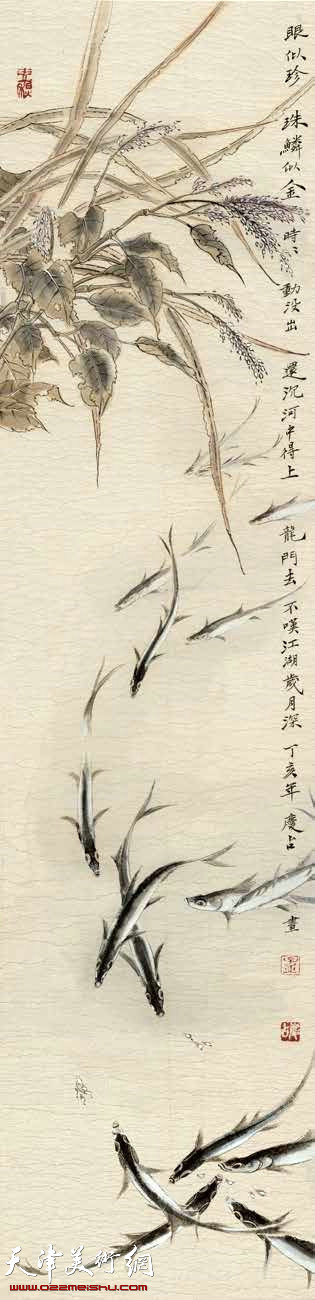 眼似珍珠鱗似金時〻動没出還沉河中得上龍門去不嘆江湖歲月深丁亥年慶占畫
天津美術網
www.022meishu.com